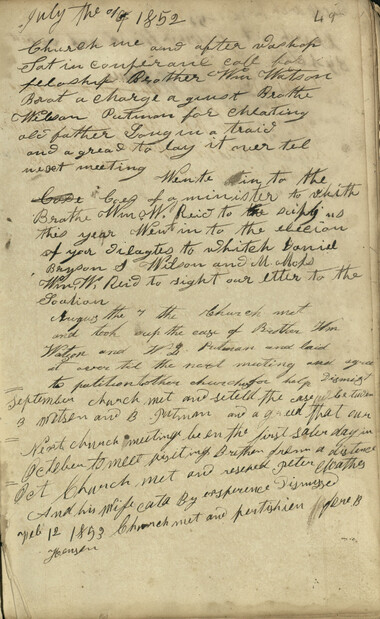 July the 9 1852
Church me and after woshop
Sat in conferanc calf for
feloship Brother Wm Watson
Brot a charge a ginst Brothe
Wilson Putman for cheating
old father Long in a traid
and a gread to lay it over tel
next meeting
Wente in to the
of a minister to whith
Brothe Wm W. Reid to the suply us
this year Went in to the elecion
of your delagtes to whitch Daniel
Bryson S Wilson and M. Moss
Wm W. Reid to right our letter to the
August the 7 the Church met
and took up the case of Brother Wm
Watson and Putman and laid
it over til the next meeting and agree
to petition other churches for help Dismist
September church met and seteld the case be tween
B Watson and B Putman and a greed that our
Next church meetings be on the first Saterday in
October to meet visiting Brethen from a distence
Oct Church met and reseved peter
And his wife by exsperence Dismissed
Feb 12 1853 Church met and pertishien fore B
Henson